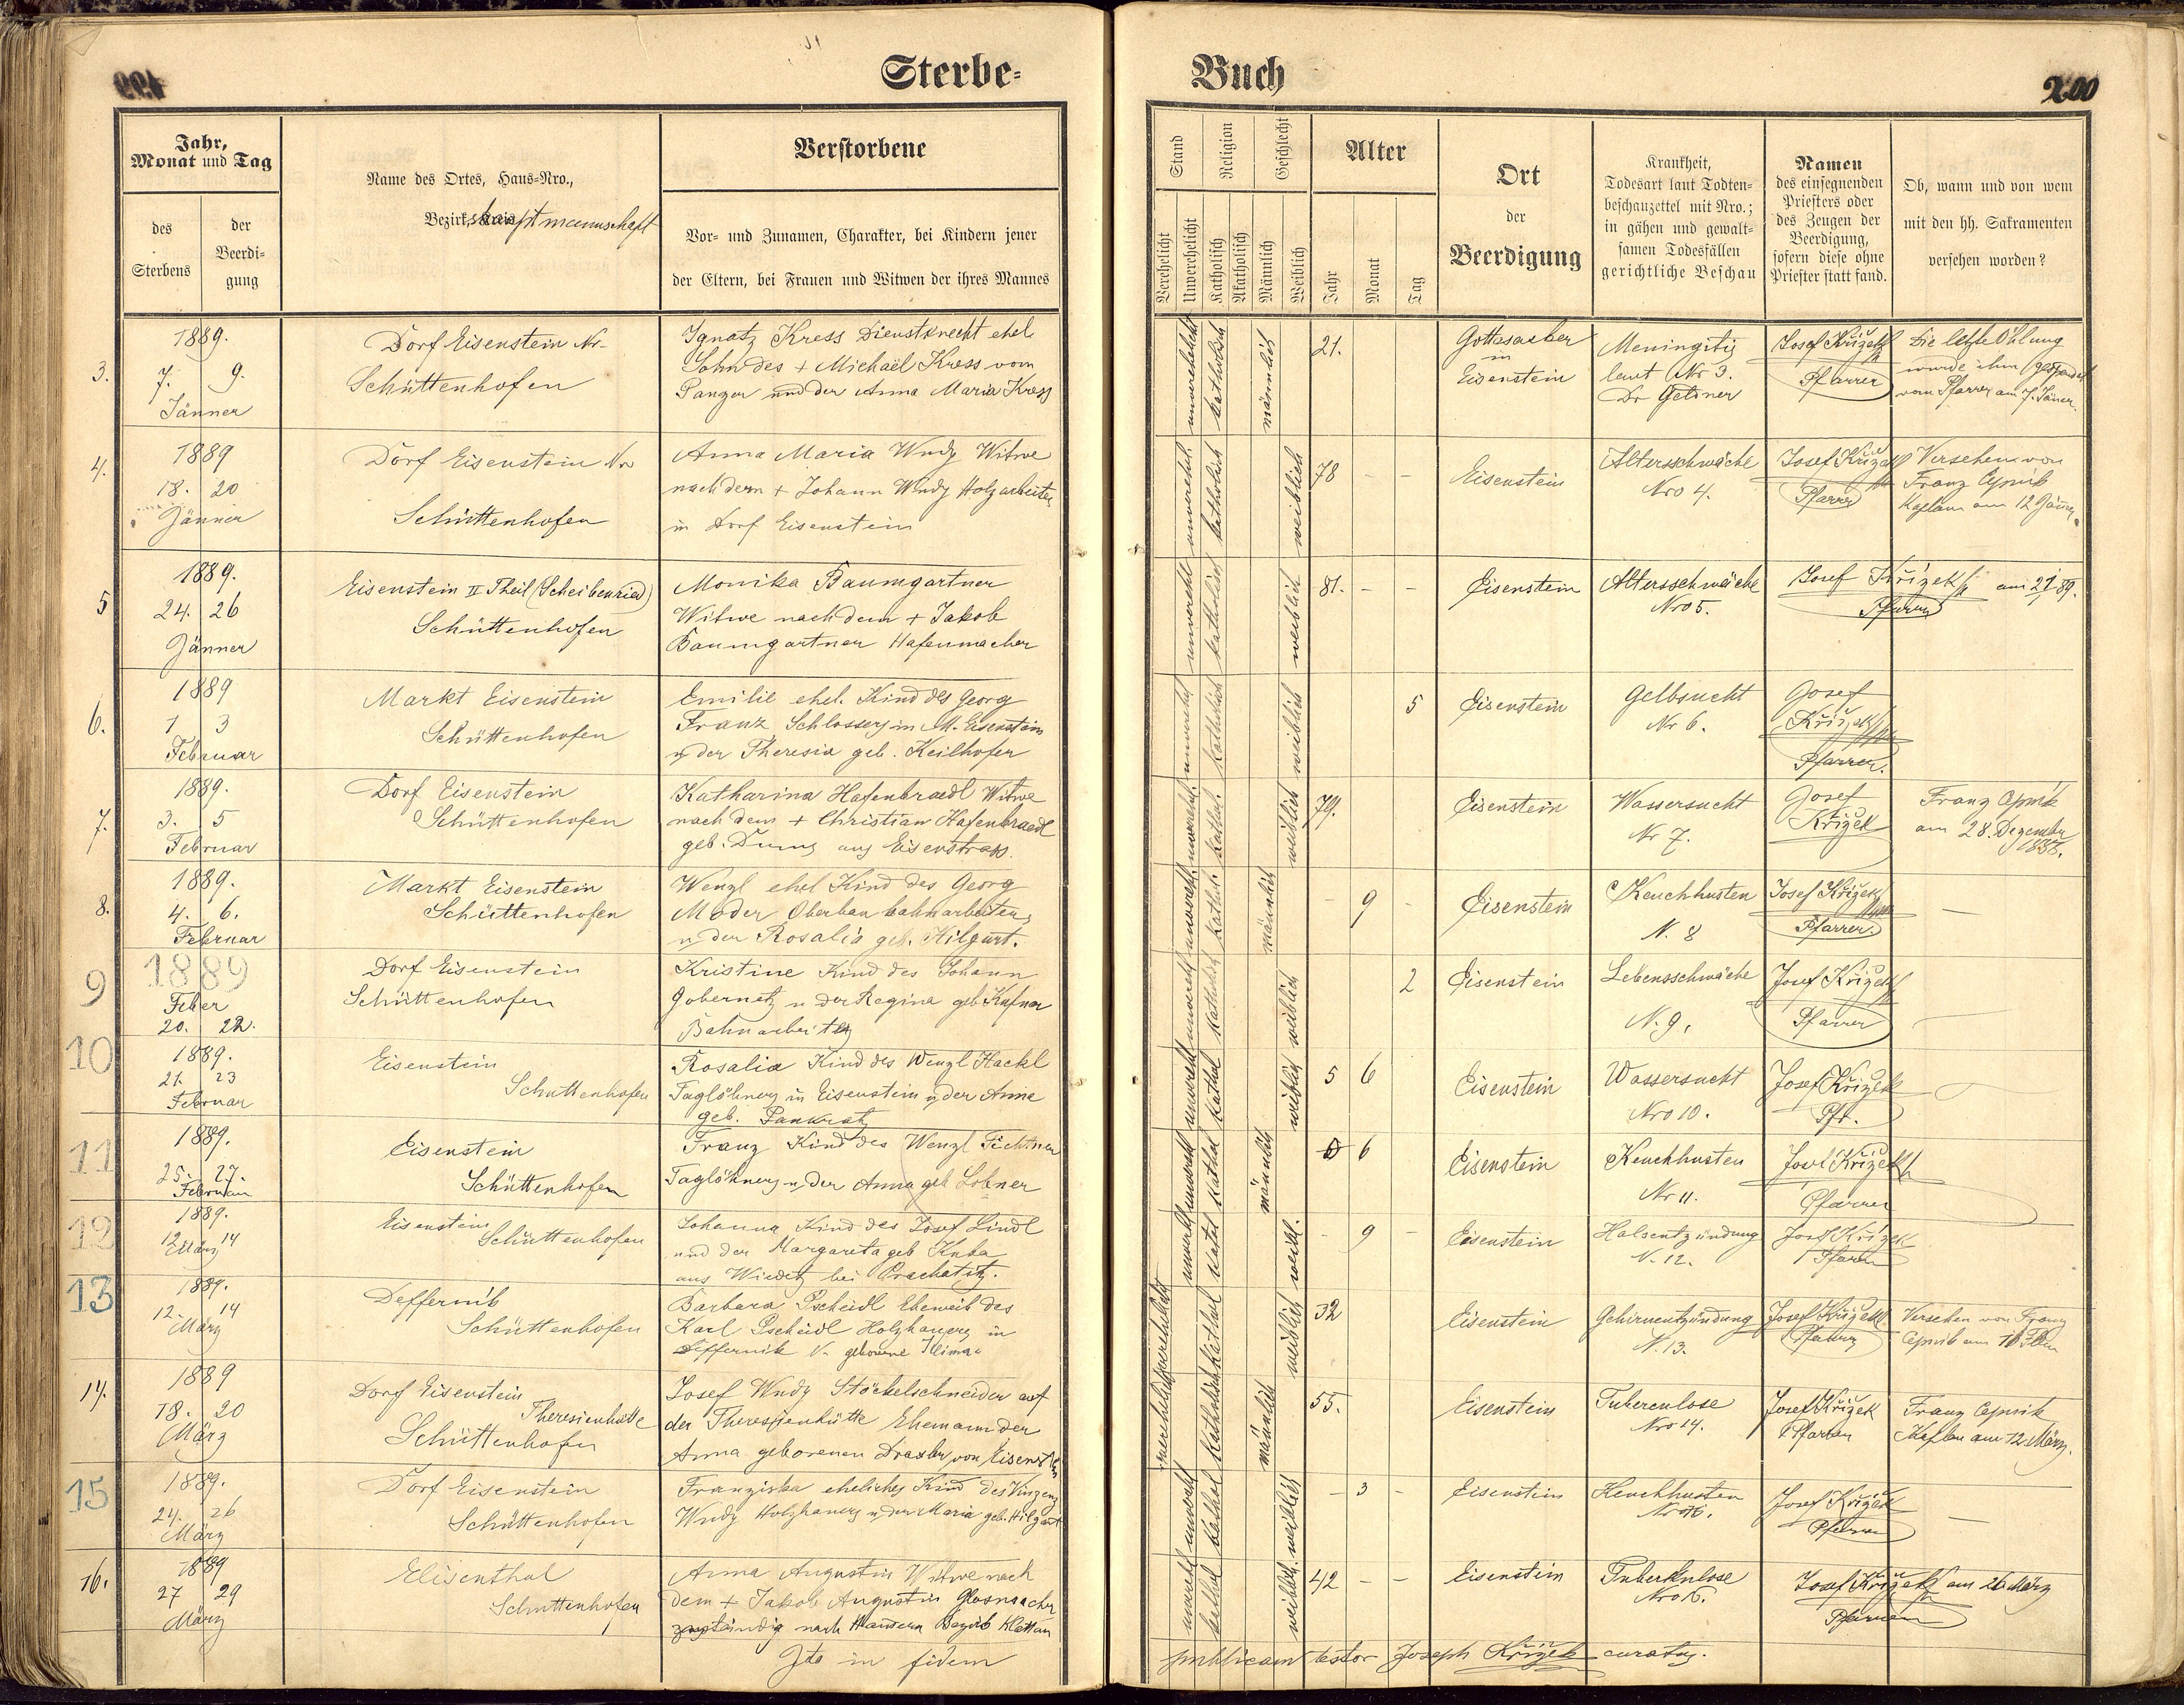 199
Sterbe-
Jahr,
Monat und Tag
des
Sterbens
der
Beerdi-
gung
Name des Ortes, Haus-Nro.,
Bezirkshauptmannschaft
Verstorbene
Vor- und Zunamen, Charakter, bei Kindern jener
der Eltern, bei Frauen und Witwen der ihres Mannes
3.
1889.
7. 9.
Jänner
Dorf Eisenstein Nr-
Schüttenhofen
Ignatz Kress Dienstknecht ehel
Sohn des + Michaël Kress vom
Panzer und der Anna Maria Kress
4.
1889
18. 20
Jänner
Dorf Eisenstein Nro
Schüttenhofen
Anna Maria Wudy Witwe
nach dem + Johann Wudy Holzarbeiter
in Dorf Eisenstein
5
1889.
24. 26
Jänner
Eisenstein II Theil (Scheibenried)
Schüttenhofen
Monika Baumgartner
Witwe nach dem + Jakob
Baumgartner Hafenmacher
6.
1889
1 3
Februar
Markt Eisenstein
Schüttenhofen
Emilie ehel. Kind des Georg
Franz Schlossers in M. Eisenstein
u der Theresia geb. Keilhofer
7.
1889.
3. 5
Februar
Dorf Eisenstein
Schüttenhofen
Katharina Hafenbraedl Witwe
nach dem + Christian Hafenbraedl
geb. aus Eisenstrass.
8.
1889.
4. 6.
Februar
Markt Eisenstein
Schüttenhofen
Wenzl ehel Kind des Georg
Moder Oberbau bahnarbeiters
u der Rosalia geb. Hilgart.
9
1889
Feber
20. 22.
Dorf Eisenstein
Schüttenhofen
Kristine Kind des Johann
Gobernetz u der Regina geb Kufner
Bahnarbeiters
10
1889.
21. 23
Februar
Eisenstein
Schüttenhofen
Rosalia Kind des Wenzl Hackl
Taglöhners in Eisenstein u der Anna
geb. Pankratz
11
1889.
25. 27.
Februar
Eisenstein
Schüttenhofen
Franz Kind des Wenzl Fichtner
Taglöhners u der Anna geb Lobner
12
1889.
12. 14
März
Eisenstein
Schüttenhofen
Johanna Kind des Josef Lindl
und der Margareta geb Kuba
aus bei Prachatitz.
13
1889.
12. 14
März
Deffernik
Schüttenhofen
Barbara Pscheidl Eheweib des
Karl Pscheidl Holzhauers in
Deffernik N. geborene Klima
14.
1889
18. 20
März
Dorf Eisenstein
Theresienhütte
Schüttenhofen
Josef Wudy Stöckelschneider auf
der Theresienhütte Ehemann der
Anna geborenen Draxler von Eisenstein
15
1889.
24. 26
März
Dorf Eisenstein
Schüttenhofen
Franziska eheliches Kind des Vinzenz
Wudy Holzhauers u der Maria geb. Hilgart
16.
1889
27 29
März
Elisenthal
Schüttenhofen
Anna Augustin Witwe nach
dem + Jakob Augustin Glasmacher
zuständig nach Bezirk Klattau
Ita in fidem
Buch
200
Stand
Religion
Geschlecht
Verehelicht
Unverehelicht
Katholisch
Akatholisch
Männlich
Weiblich
Alter
Jahr
Monat
Tag
Ort
der
Beerdigung
Krankheit,
Todesart laut Todten-
beschauzettel mit Nro.;
in gähen und gewalt-
samen Todesfällen
gerichtliche Beschau
Namen
des einsegnenden
Priesters oder
des Zeugen der
Beerdigung,
sofern diese ohne
Priester statt fand.
Ob, wann und von wem
mit den hh. Sakramenten
versehen worden?
unverehelicht katholisch männlich 21.
Gottesacker
in
Eisenstein
Meningitis
laut Nr 3.
Dr Geldner
Josef Křížek
Pfarrer
Die letzte Öhlung
wurde ihm gespendet
vom Pfarrer am 7. Jäner.
unverehelich katholisch weiblich 78 - -
Eisenstein
Altersschwäche
Nro 4.
Josef Křížek
Pfarrer
Versehen von
Franz
Kaplan am 12 Jänner
unverehl katholisch weiblich 81. - -
Eisenstein
Altersschwäche
Nro 5.
Josef Křížek
Pfarrer
am 21/1 89.
katholisch weiblich 5
Eisenstein
Gelbsucht
Nr 6.
Josef
Křížek
Pfarrer.
kathol. weiblich 79.
Eisenstein
Wassersucht
Nr 7.
Josef
Křížek
Franz
am 28. Dezember
1888.
kathol. männlich - 9 -
Eisenstein
Keuchhusten
N. 8
Josef Křížek
Pfarrer.
—
katholisch weiblich 2
Eisenstein
Lebensschwäche
N. 9.
Josef Křížek
Pfarrer
kathol weiblich 5 6
Eisenstein
Wassersucht
Nro 10.
Josef Křížek
Pfr.
kathol männlich 6
Eisenstein
Keuchhusten
Nr 11.
Josef Křížek
Pfarrer
kathol weibl. - 9 -
Eisenstein
Halsentzündung
N. 12.
Josef Křížek
Pfarrer
verehelicht kathol weiblich 32
Eisenstein
Gehirnentzündung
N. 13.
Josef Křížek
Pfarrer
Versehen von Franz
verehelicht katholisch männlich 55.
Eisenstein
Tuberculose
Nro 14.
Josef Křížek
Pfarrer
Franz
Kaplan am 12 März.
kathol weiblich - 3 -
Eisenstein
Keuchhusten
Josef Křížek
Pfarrer
—
kathol weiblich. 42 - -
Eisenstein
Tuberkulose
Nro 16.
Josef Křížek
Pfarrer
am 26 März
publicam testor Joseph Křížek curatus.